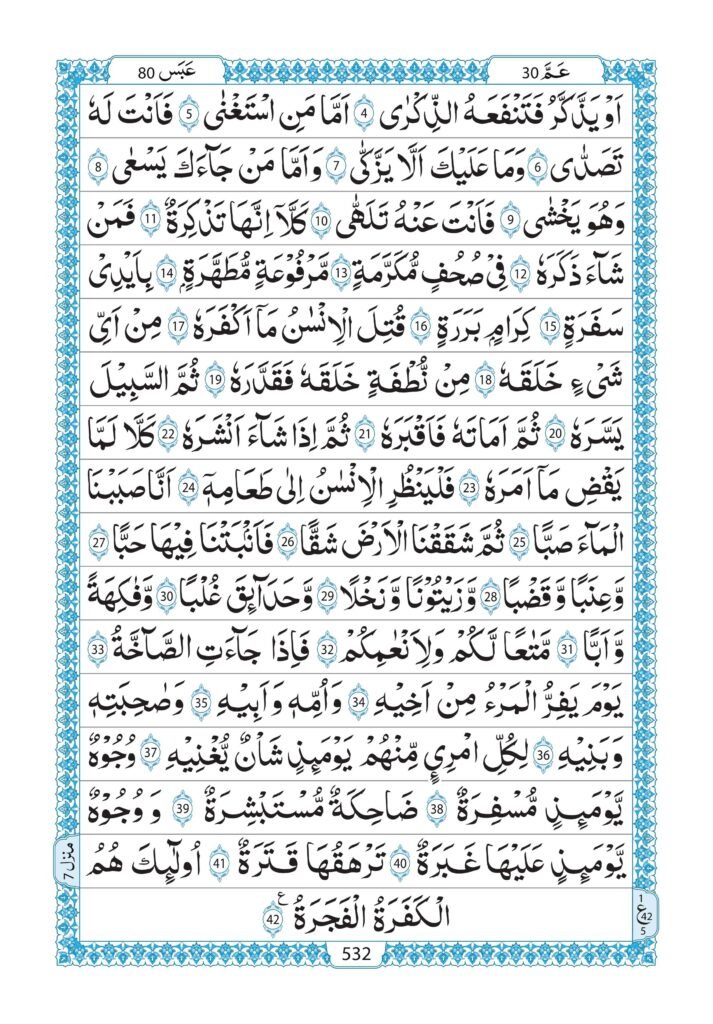 عَمَّ 30
عَبَسَ 80
اَوۡ يَذَّكَّرُ فَتَنۡفَعَهُ الذِّكۡرٰى 4 اَمَّا مَنِ اسۡتَغۡنٰى 5 فَاَنۡتَ لَهٗ
تَصَدّٰى 6 وَمَا عَلَيۡكَ اَلَّا يَزَّكّٰى 7 وَاَمَّا مَنۡ جَآءَكَ يَسۡعٰى 8
وَهُوَ يَخۡشٰى 9 فَاَنۡتَ عَنۡهُ تَلَهّٰى 10 كَلَّاۤ اِنَّهَا تَذۡكِرَةٌ 11 فَمَنۡ
شَآءَ ذَكَرَهٗ 12 فِىۡ صُحُفٍ مُّكَرَّمَةٍ 13 مَّرۡفُوۡعَةٍ مُّطَهَّرَةٍۭ 14 بِاَيۡدِىۡ
سَفَرَةٍ 15 كِرَامٍۭ بَرَرَةٍ 16 قُتِلَ الۡاِنۡسٰنُ مَاۤ اَكۡفَرَهٗ 17 مِنۡ اَىِّ
شَىۡءٍ خَلَقَهٗ 18 مِنۡ نُّطۡفَةٍ خَلَقَهٗ فَقَدَّرَهٗ 19 ثُمَّ السَّبِيۡلَ
يَسَّرَهٗ 20 ثُمَّ اَمَاتَهٗ فَاَقۡبَرَهٗ 21 ثُمَّ اِذَا شَآءَ اَنۡشَرَهٗ 22 كَلَّا لَمَّا
يَقۡضِ مَاۤ اَمَرَهٗ 23 فَلۡيَنۡظُرِ الۡاِنۡسٰنُ اِلٰى طَعَامِهٖۤ 24 اَنَّا صَبَبۡنَا
الۡمَآءَ صَبًّا 25 ثُمَّ شَقَقۡنَا الۡاَرۡضَ شَقًّا 26 فَاَنۡۢبَتۡنَا فِيۡهَا حَبًّا 27
وَّعِنَبًا وَّقَضۡبًا 28 وَّزَيۡتُوۡنًا وَّنَخۡلًا 29 وَّحَدَآئِقَ غُلۡبًا 30 وَّفٰكِهَةً
وَّاَبًّا 31 مَّتٰعًا لَّكُمۡ وَلِاَنۡعٰمِكُمۡ 32 فَاِذَا جَآءَتِ الصَّآخَّةُ 33
يَوۡمَ يَفِرُّ الۡمَرۡءُ مِنۡ اَخِيۡهِ 34 وَاُمِّهٖ وَاَبِيۡهِ 35 وَصٰحِبَتِهٖ
وَبَنِيۡهِ 36 لِكُلِّ امۡرِئٍ مِّنۡهُمۡ يَوۡمَئِذٍ شَاۡنٌ يُّغۡنِيۡهِ 37 وُجُوۡهٌ
يَّوۡمَئِذٍ مُّسۡفِرَةٌ 38 ضَاحِكَةٌ مُّسۡتَبۡشِرَةٌ 39 وَ وُجُوۡهٌ
يَّوۡمَئِذٍ عَلَيۡهَا غَبَرَةٌ 40 تَرۡهَقُهَا قَتَرَةٌ 41 اُولٰٓئِكَ هُمُ
الۡكَفَرَةُ الۡفَجَرَةُ 42 ع
منزل 7
1
ع 42
5
532